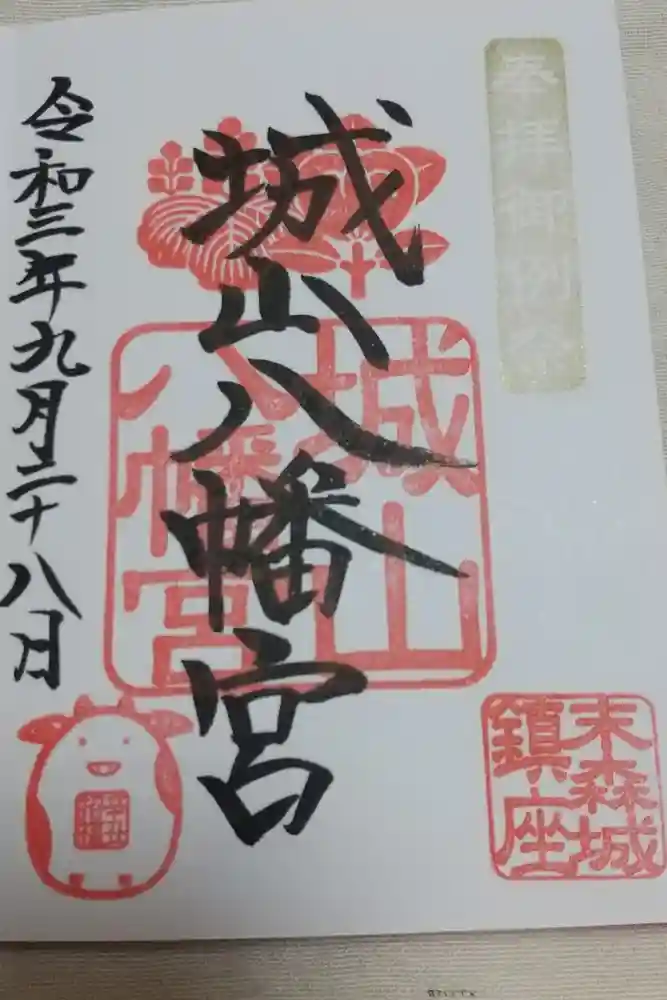 奉拝御例祭
城山八幡宮
城山
八幡宮
末森城
鎮座
令和三年九月二十八日